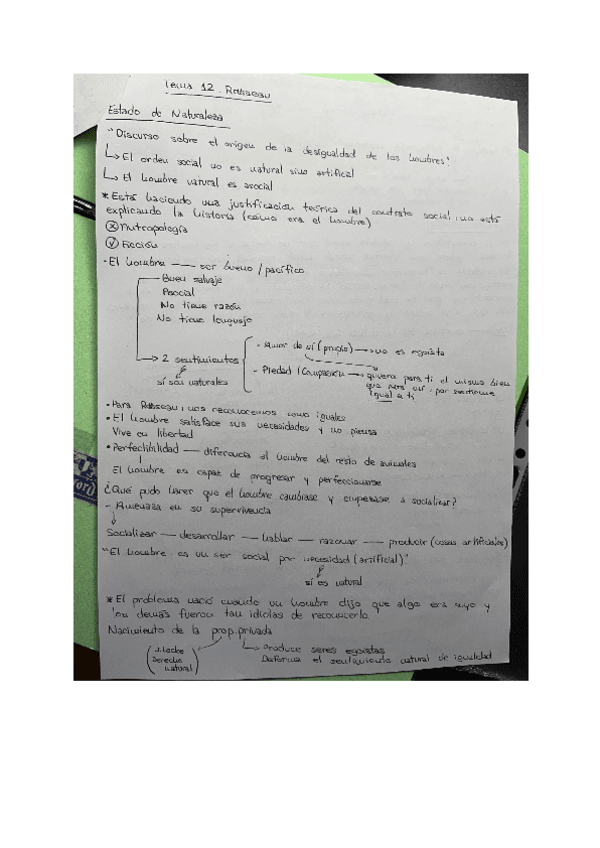 Tema 12. Rousseau
Estado de Naturaleza
"Discurso sobre el origen de la desigualdad de los hombres"
↳ El orden social no es natural sino artificial
↳ El hombre natural es asocial
* Está haciendo una justificación teórica del contrato social, no está
explicando la historia (cómo era el hombre)
ⓧ Antropología
ⓥ Ficción
· El hombre — ser bueno / pacífico
Buen salvaje
Asocial
No tiene razón
No tiene lenguaje
→ 2 sentimientos
sí son naturales
- Amor de sí (propio) → no es egoísta
- Piedad / Compasión → quiero para ti el mismo bien
que para mí, por sentirme
igual a ti
· Para Rousseau, nos reconocemos como iguales
· El hombre satisface sus necesidades y no piensa
Vive en libertad
· Perfectibilidad — diferencia al hombre del resto de animales
El hombre es capaz de progresar y perfeccionarse
¿Qué pudo hacer que el hombre cambiase y empezase a socializar?
- Amenaza en su supervivencia
Socializar — desarrollar — hablar — razonar — producir (cosas artificiales)
"El hombre es un ser social por necesidad (artificial)"
sí es natural
* El problema nació cuando un hombre dijo que algo era suyo y
los demás fueron tan idiotas de reconocerlo.
Nacimiento de la prop. privada
(J. Locke
Derecho
natural)
↳ Produce seres egoístas
Deforma el sentimiento natural de igualdad